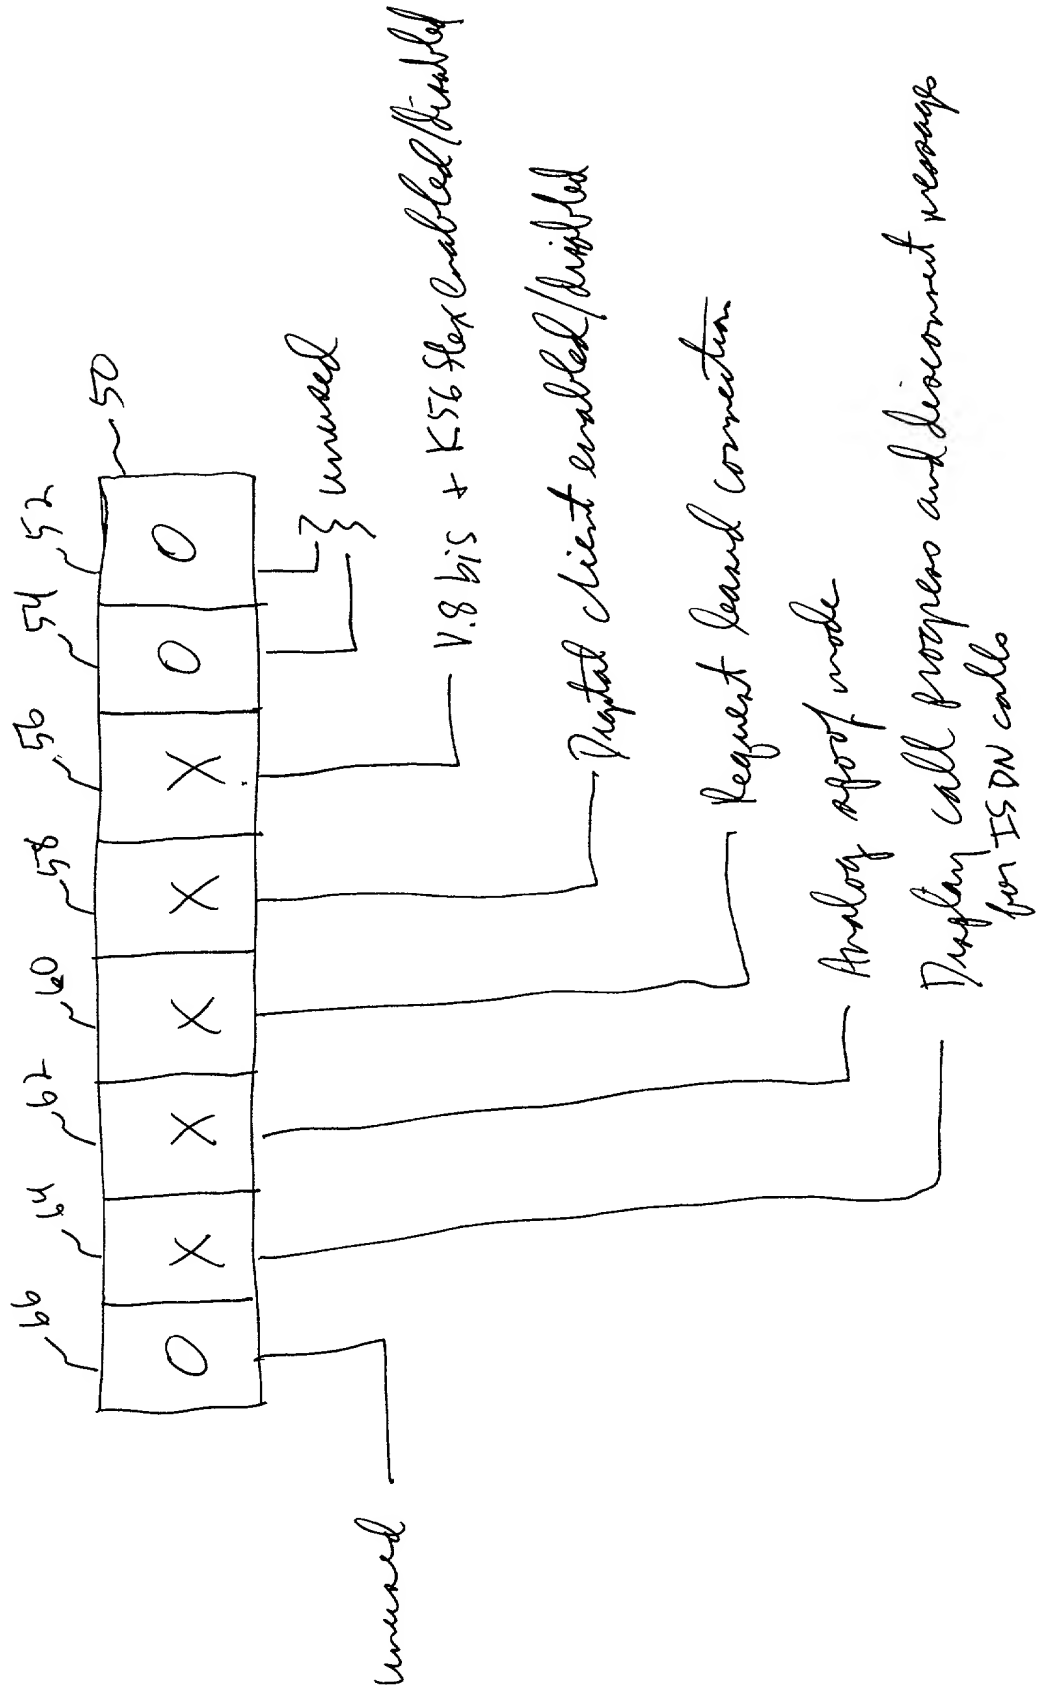 66 64 62 60 58 56 54 52
50
O X X X X X O O
unused
V.8 bis + K56 flex enabled/disabled
Digital client enabled/disabled
Request leased connection
Analog spoof mode
Display call progress and disconnect messages
for ISDN calls
unused